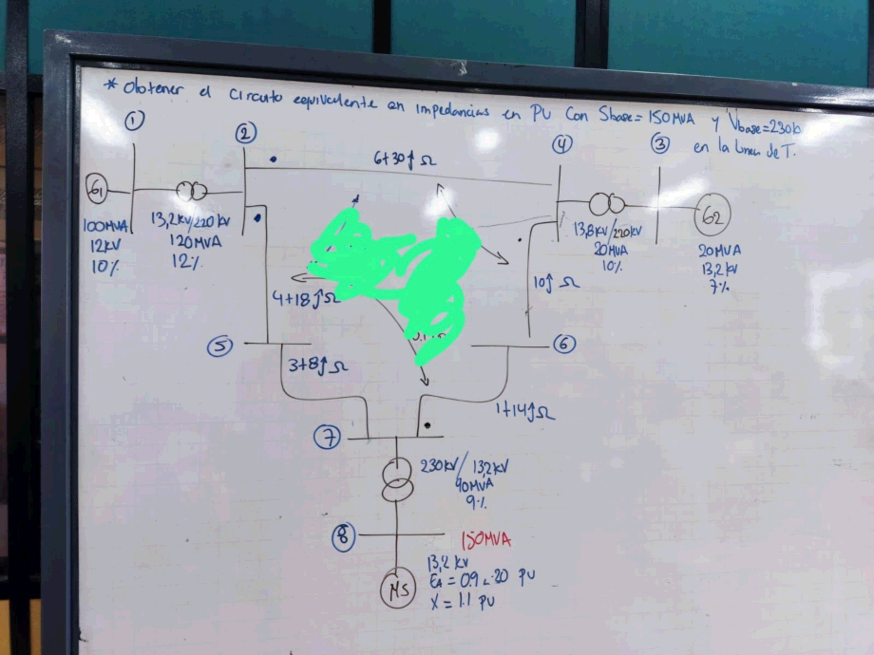 * Obtener el circuito equivalente en impedancias en PU con Sbase = 150MVA y Vbase = 230k
en la linea de T.
①
②
④
③
6+30j Ω
G1
100MVA
12kV
10%
13,2kV/220kV
120MVA
12%
13,8kV/220kV
20MVA
10%
G2
20MVA
13,2kV
7%
4+18j Ω
10j Ω
⑤
⑥
3+8j Ω
1+14j Ω
⑦
230kV/13,2kV
90MVA
9%
⑧
150MVA
MS
13,2 kV
EA = 0.9 ∠-20 PU
X = 1.1 PU